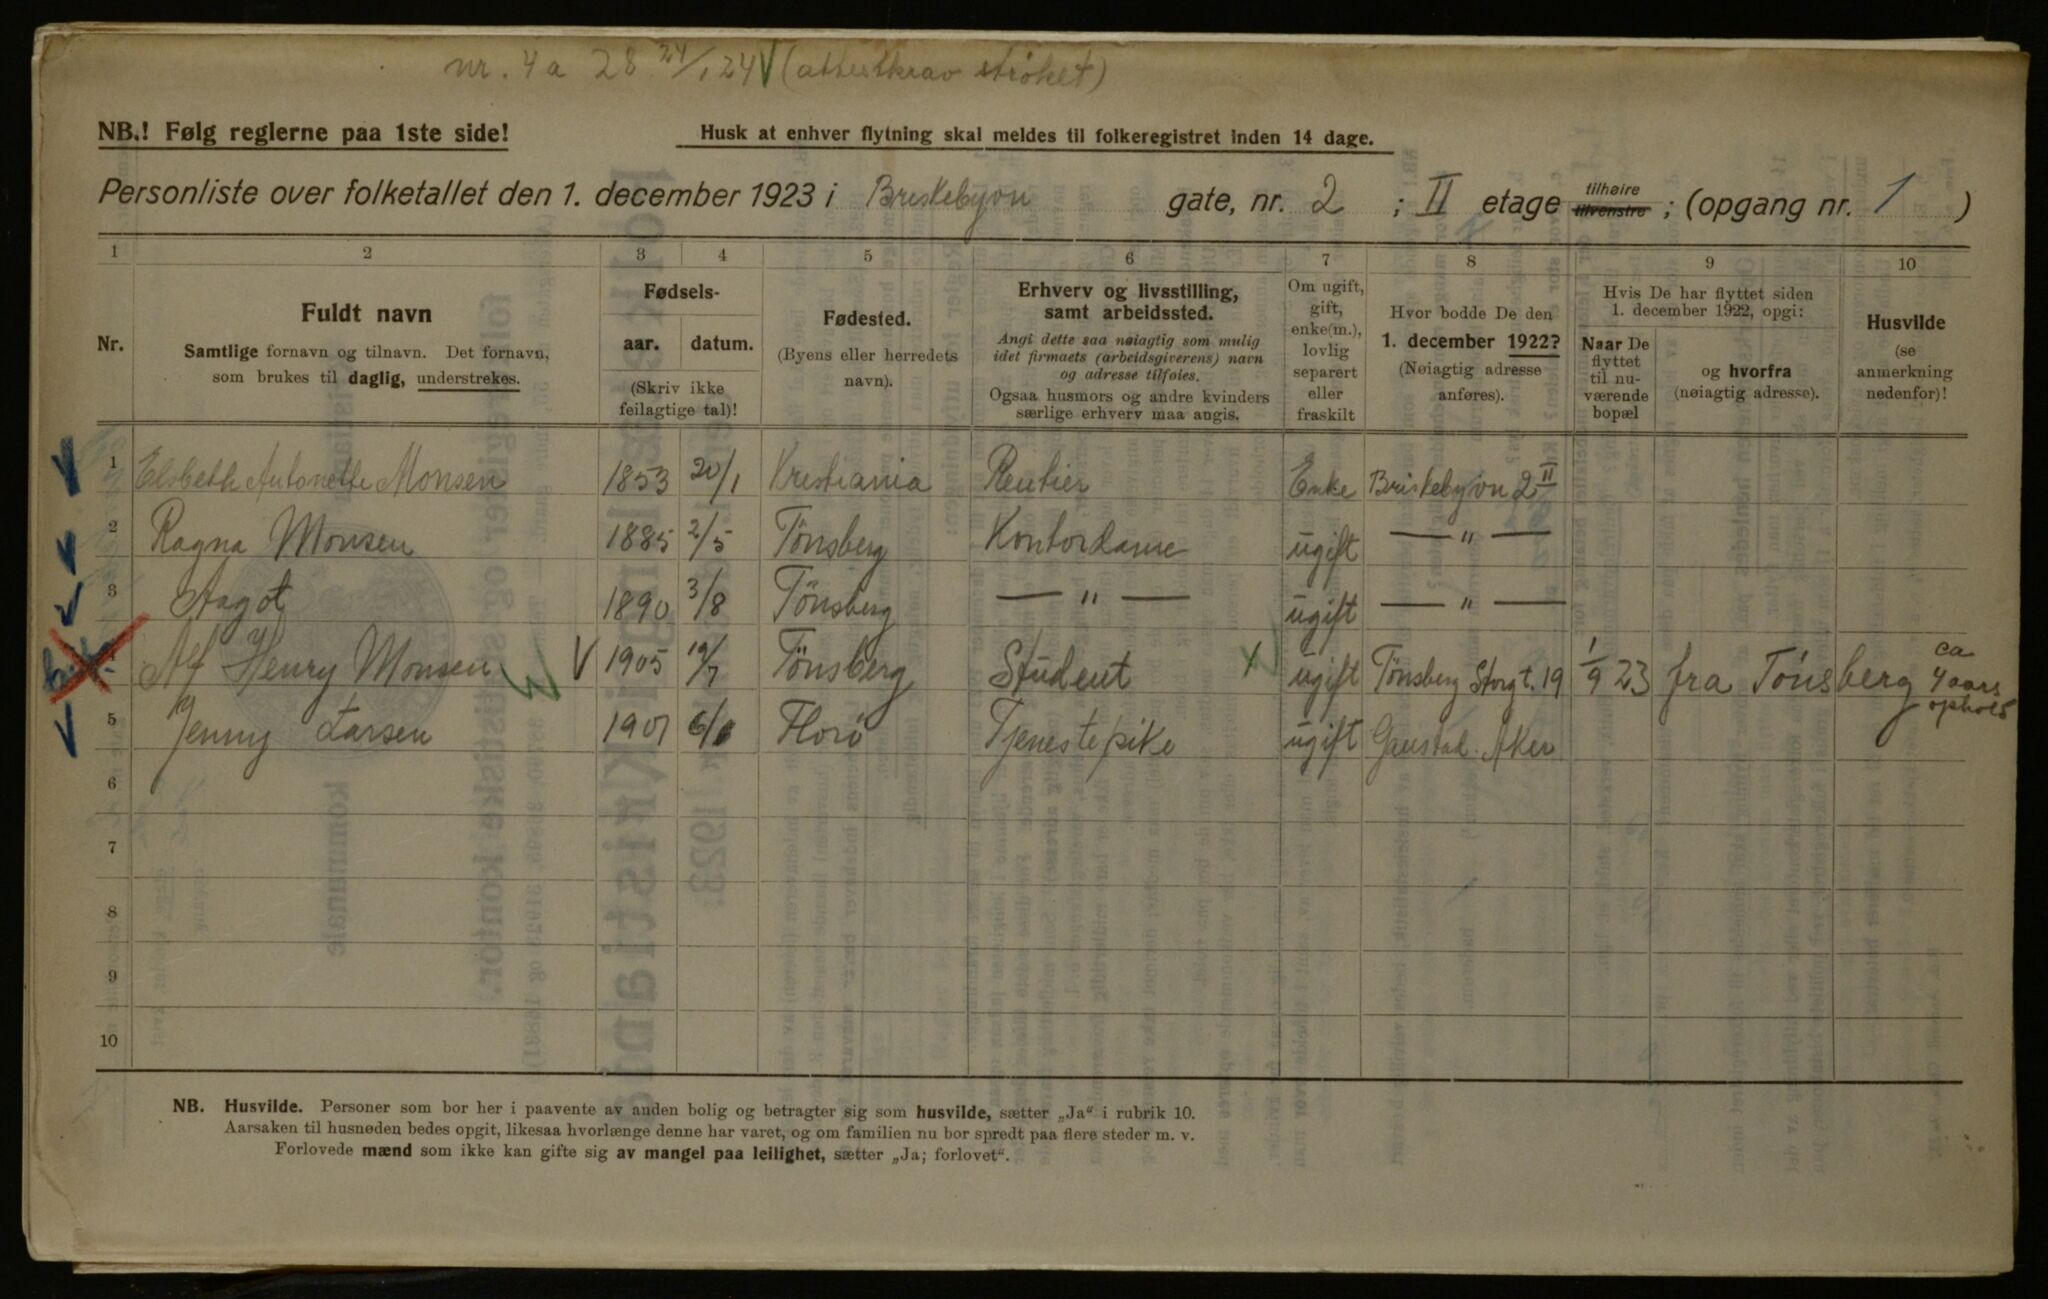 nr. 4a 28 24/1 24 V (attestkrav strøket)
NB.! Følg reglerne paa 1ste side!
Husk at enhver flytning skal meldes til folkeregistret inden 14 dage.
Personliste over folketallet den 1. december 1923 i Briskebyvn gate, nr. 2 ; II etage tilhøire tilvenstre ; (opgang nr. 1 )
1 2 3 4 5 6 7 8 9 10
Nr.
Fuldt navn
Samtlige fornavn og tilnavn. Det fornavn,
som brukes til daglig, understrekes.
Fødsels-
aar. datum.
(Skriv ikke
feilagtige tal)!
Fødested.
(Byens eller herredets
navn).
Erhverv og livsstilling,
samt arbeidssted.
Angi dette saa nøiagtig som mulig
idet firmaets (arbeidsgiverens) navn
og adresse tilføies.
Ogsaa husmors og andre kvinders
særlige erhverv maa angis.
Om ugift,
gift,
enke(m.),
lovlig
separert
eller
fraskilt
Hvor bodde De den
1. december 1922?
(Nøiagtig adresse
anføres).
Hvis De har flyttet siden
1. december 1922, opgi:
Naar De
flyttet
til nu-
værende
bopæl
og hvorfra
(nøiagtig adresse).
Husvilde
(se
anmerkning
nedenfor)!
1 Elsbeth Antonette Monsen 1853 20/1 Kristiania Rentier Enke Briskebyvn 2 II
2 Ragna Monsen 1885 2/5 Tönsberg Kontordame ugift — " —
3 Aagot 1890 3/8 Tönsberg — " — ugift — " —
4 Alf Henry Monsen V 1905 19/7 Tönsberg Student X ugift Tönsberg Storgt. 19 1/9 23 fra Tönsberg ca 4 aars ophold
5 Jenny Larsen 1901 6/1 Florö Tjenestepike ugift Gaustad. Aker
6
7
8
9
10
NB. Husvilde. Personer som bor her i paavente av anden bolig og betragter sig som husvilde, sætter „Ja“ i rubrik 10.
Aarsaken til husnøden bedes opgit, likesaa hvorlænge denne har varet, og om familien nu bor spredt paa flere steder m. v.
Forlovede mænd som ikke kan gifte sig av mangel paa leilighet, sætter „Ja; forlovet“.